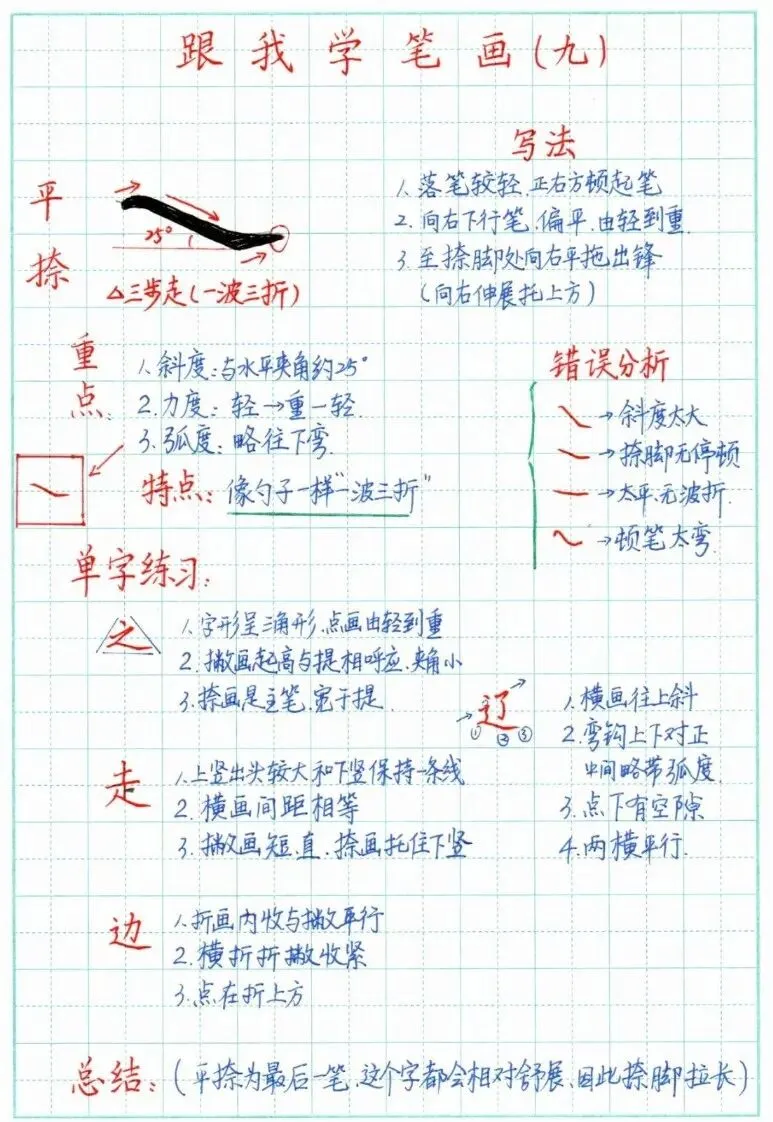 跟我学笔画(九)
平捺
25°
△三步走(一波三折)
写法
1.落笔较轻、正右方顿起笔
2.向右下行笔、偏平、由轻到重.
3.至捺脚处向右平拖出锋
(向右伸展托上方)
重点:
1.斜度:与水平夹角约25°
2.力度:轻→重一轻.
3.弧度:略往下弯.
特点:像勺子一样"一波三折"
错误分析
→斜度太大
→捺脚无停顿
→太平、无波折.
→顿笔太弯.
单字练习:
之
1.字形呈三角形、点画由轻到重
2.撇画起高与提相呼应、夹角小
3.捺画是主笔、宽于提.
辽
① ② ③
1.横画往上斜
2.弯钩上下对正
中间略带弧度.
3.点下有空隙
4.两横平行.
走
1.上竖出头较大和下竖保持一条线
2.横画间距相等
3.撇画短、直、捺画托住下竖
边
1.折画内收与撇平行
2.横折折撇收紧
3.点在折上方
总结:(平捺为最后一笔、这个字都会相对舒展、因此捺脚拉长)